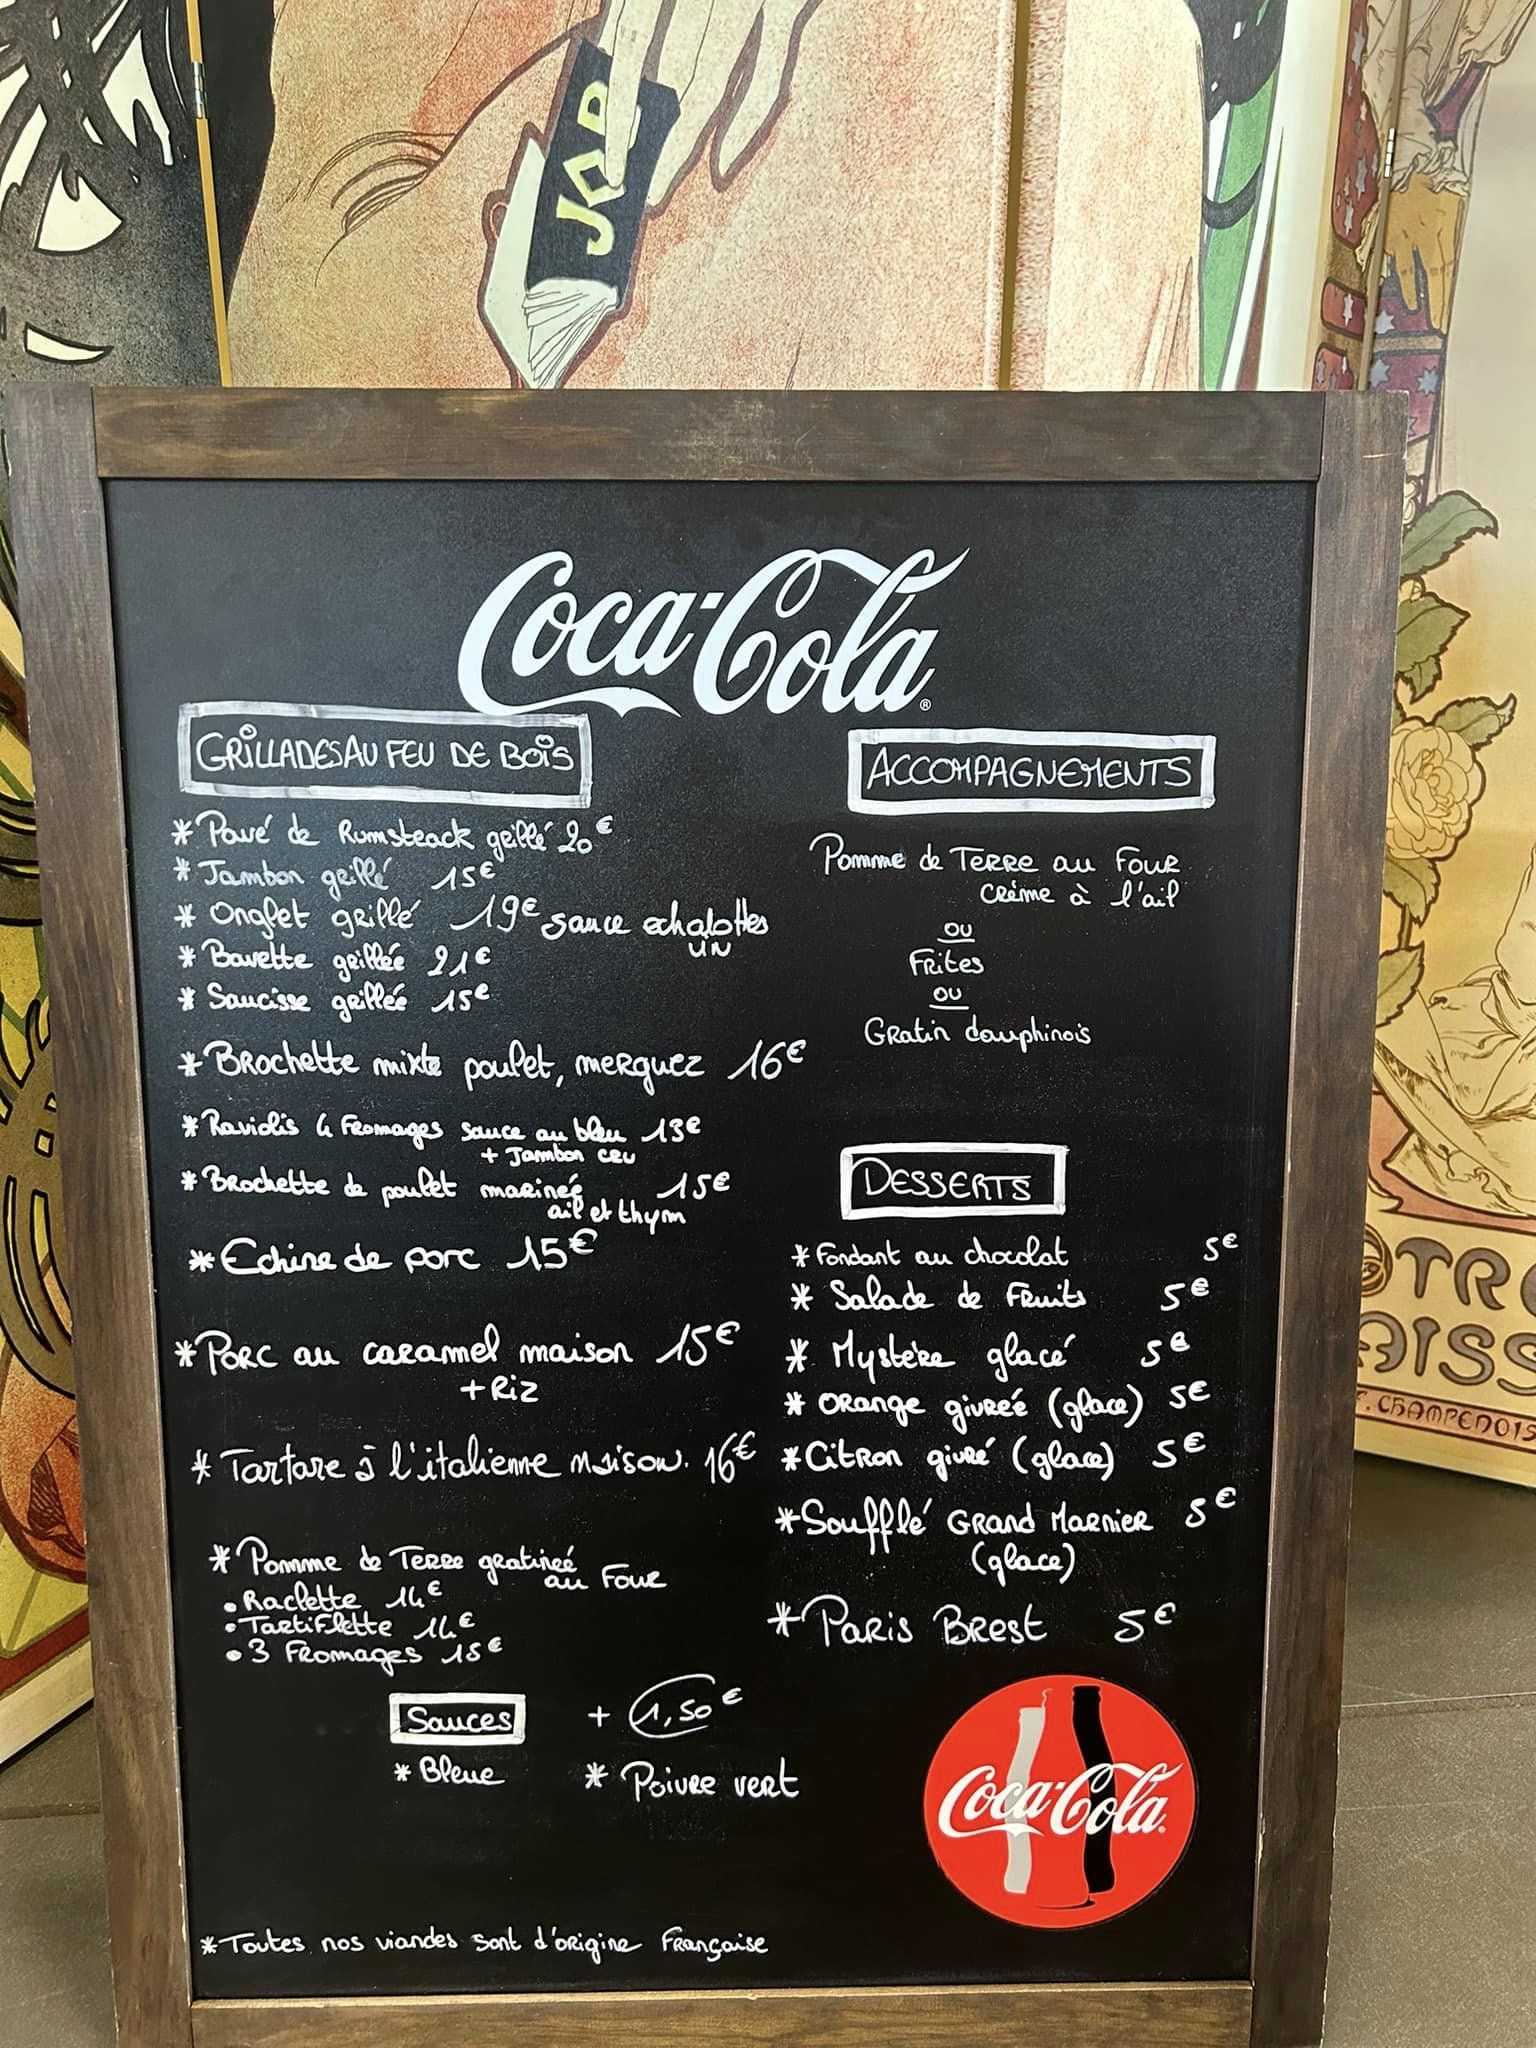 JOB
Coca-Cola®
GRILLADES AU FEU DE BOIS
* Pavé de Rumsteack grillé 20€
* Jambon grillé 15€
* Onglet grillé 19€ sauce echalottes
VIN
* Bavette grillée 21€
* Saucisse grillée 15€
* Brochette mixte poulet, merguez 16€
* Raviolis 4 Fromages sauce au bleu 13€
+ Jambon cru
* Brochette de poulet marineé 15€
ail et thym
* Echine de porc 15€
* Porc au caramel maison 15€
+ Riz
* Tartare à l'italienne maison. 16€
* Pomme de Terre gratineé
au Four
• Raclette 14€
• Tartiflette 14€
• 3 Fromages 15€
Sauces + 1,50€
* Bleue * Poivre vert
* Toutes nos viandes sont d'origine Française
ACCOMPAGNEMENTS
Pomme de Terre au Four
crème à l'ail
ou
Frites
ou
Gratin dauphinois
DESSERTS
* Fondant au chocolat 5€
* Salade de Fruits 5€
* Mystère glacé 5€
* Orange givreé (glace) 5€
* Citron givré (glace) 5€
* Soufflé Grand Marnier 5€
(glace)
* Paris Brest 5€
Coca-Cola®
CHAMPENOIS